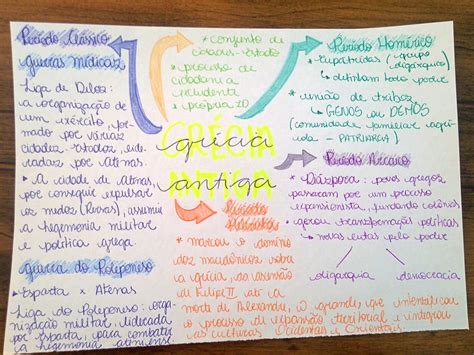 Período Clássico
guerras médicas
Liga de Delos:
a organização de
um exército, for-
mado por várias
cidades-Estados, lide-
radas por Atenas.
* A cidade de Atenas,
por conseguir expulsar
os medos (Persas), assumiu
a hegemonia militar
e política grega.
guerra do Peloponeso
Esparta x Atenas
Liga do Peloponeso: orga-
nização militar, liderada
por Esparta, para combater
a hegemonia ateniense
* conjunto de
cidades-Estado
* processo de
cidadania
excludente
* própria
GRÉCIA
ANTIGA
grécia
antiga
Período Homérico
* Eupátridas (grupo
oligárquico)
detinham todo poder
* união de tribos
GENOS ou DEMOS
(comunidade familiar agrí-
cola - PATRIARCA)
Período Arcaico
* Diáspora: povos gregos
passaram por um processo
expansionista, fundando colônias
* gerou transformações políticas
novas lutas pelo poder
oligarquia
democracia
Período
* marcou o domínio
dos macedônios sobre
a grécia, da ascensão
de Filipe II até a
morte de Alexandre, o grande, que intensificou
o processo de expansão territorial e integrou
as culturas Ocidentais e Orientais